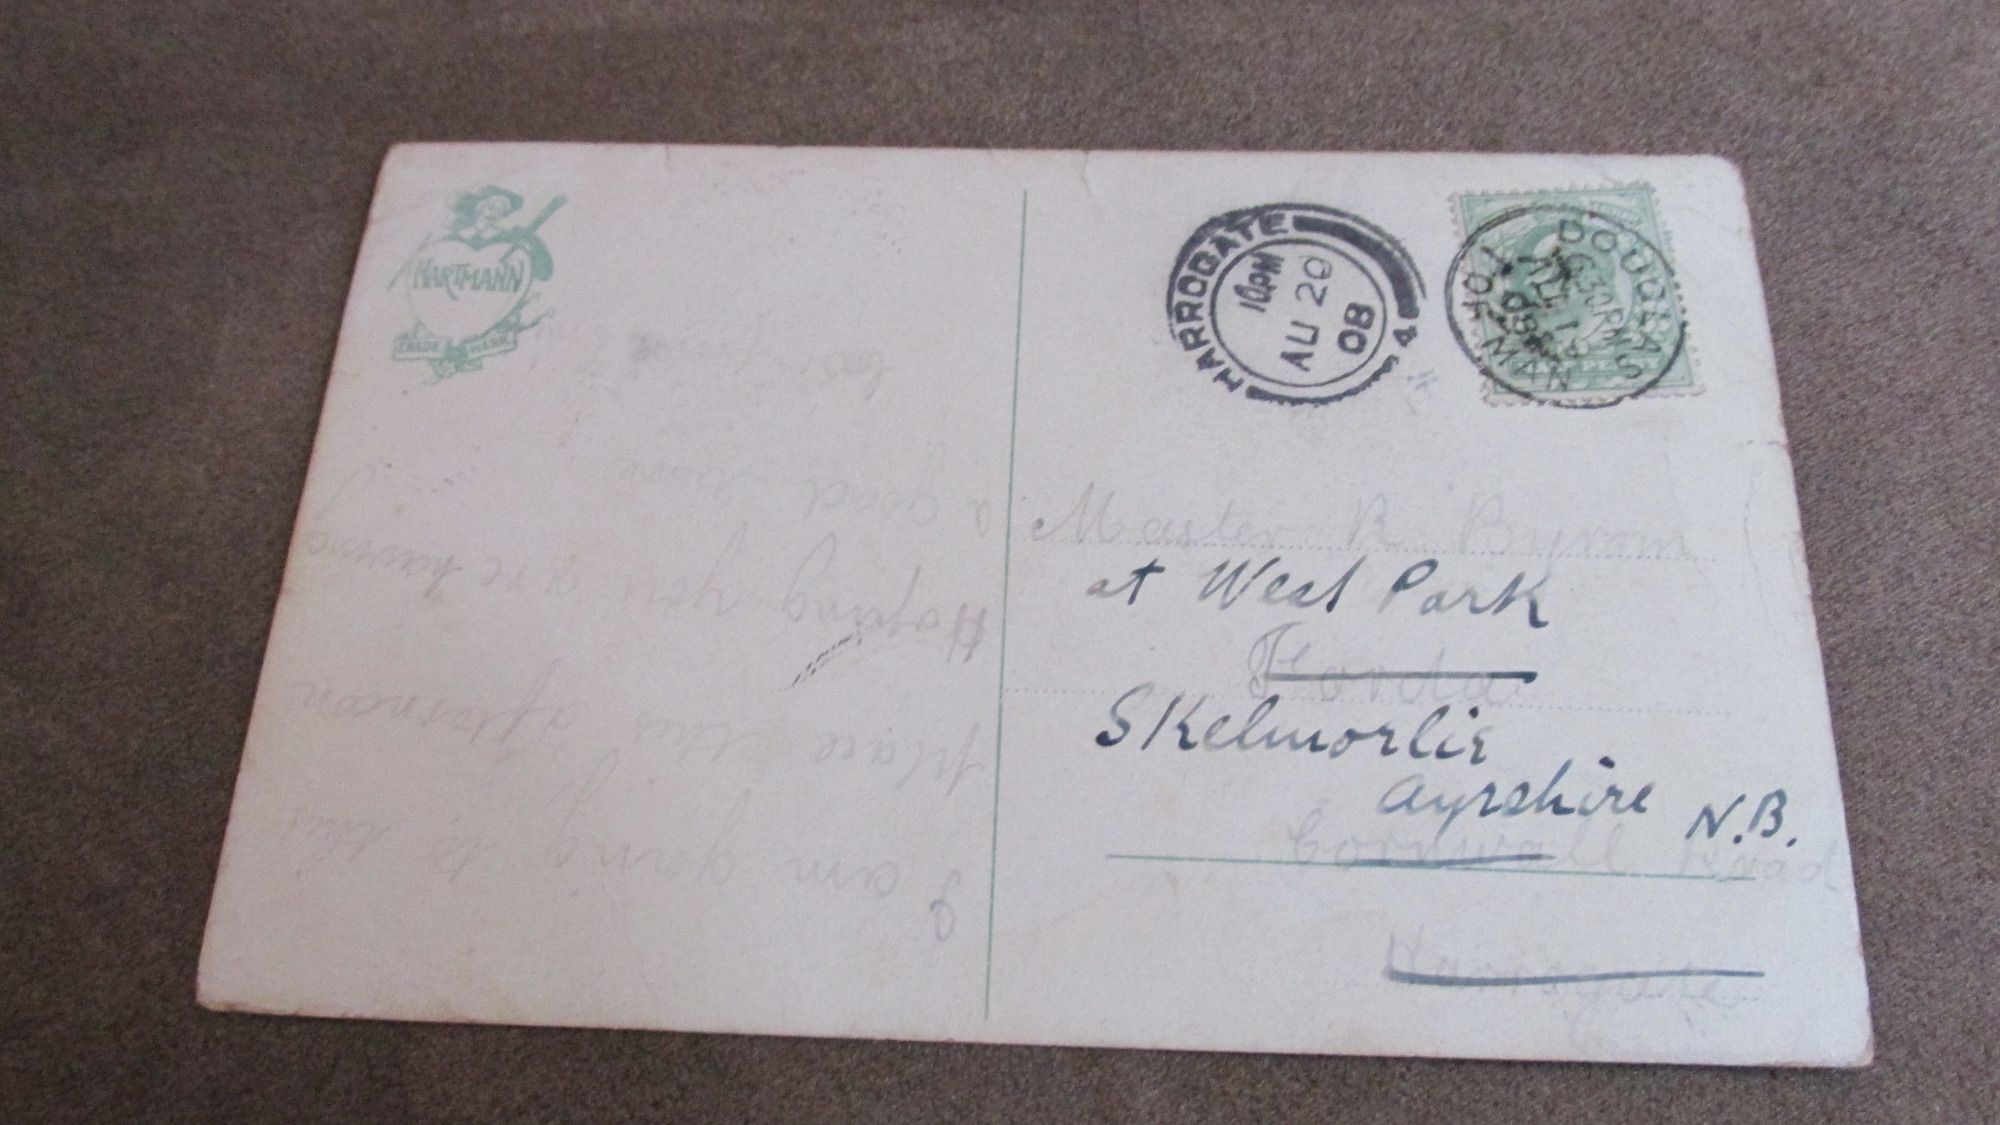 HARTMANN
TRADE MARK
I am going to this
place this afternoon
Hoping you are having
a good time
love from
HARROGATE
10 PM
AU 20
08
4
DOUGLAS
6 30 PM
AU 19
08
I OF MAN
Master R. Byrom
at West Park
Skelmorlie
Ayrshire N.B.
Cornwall Road
Harrogate